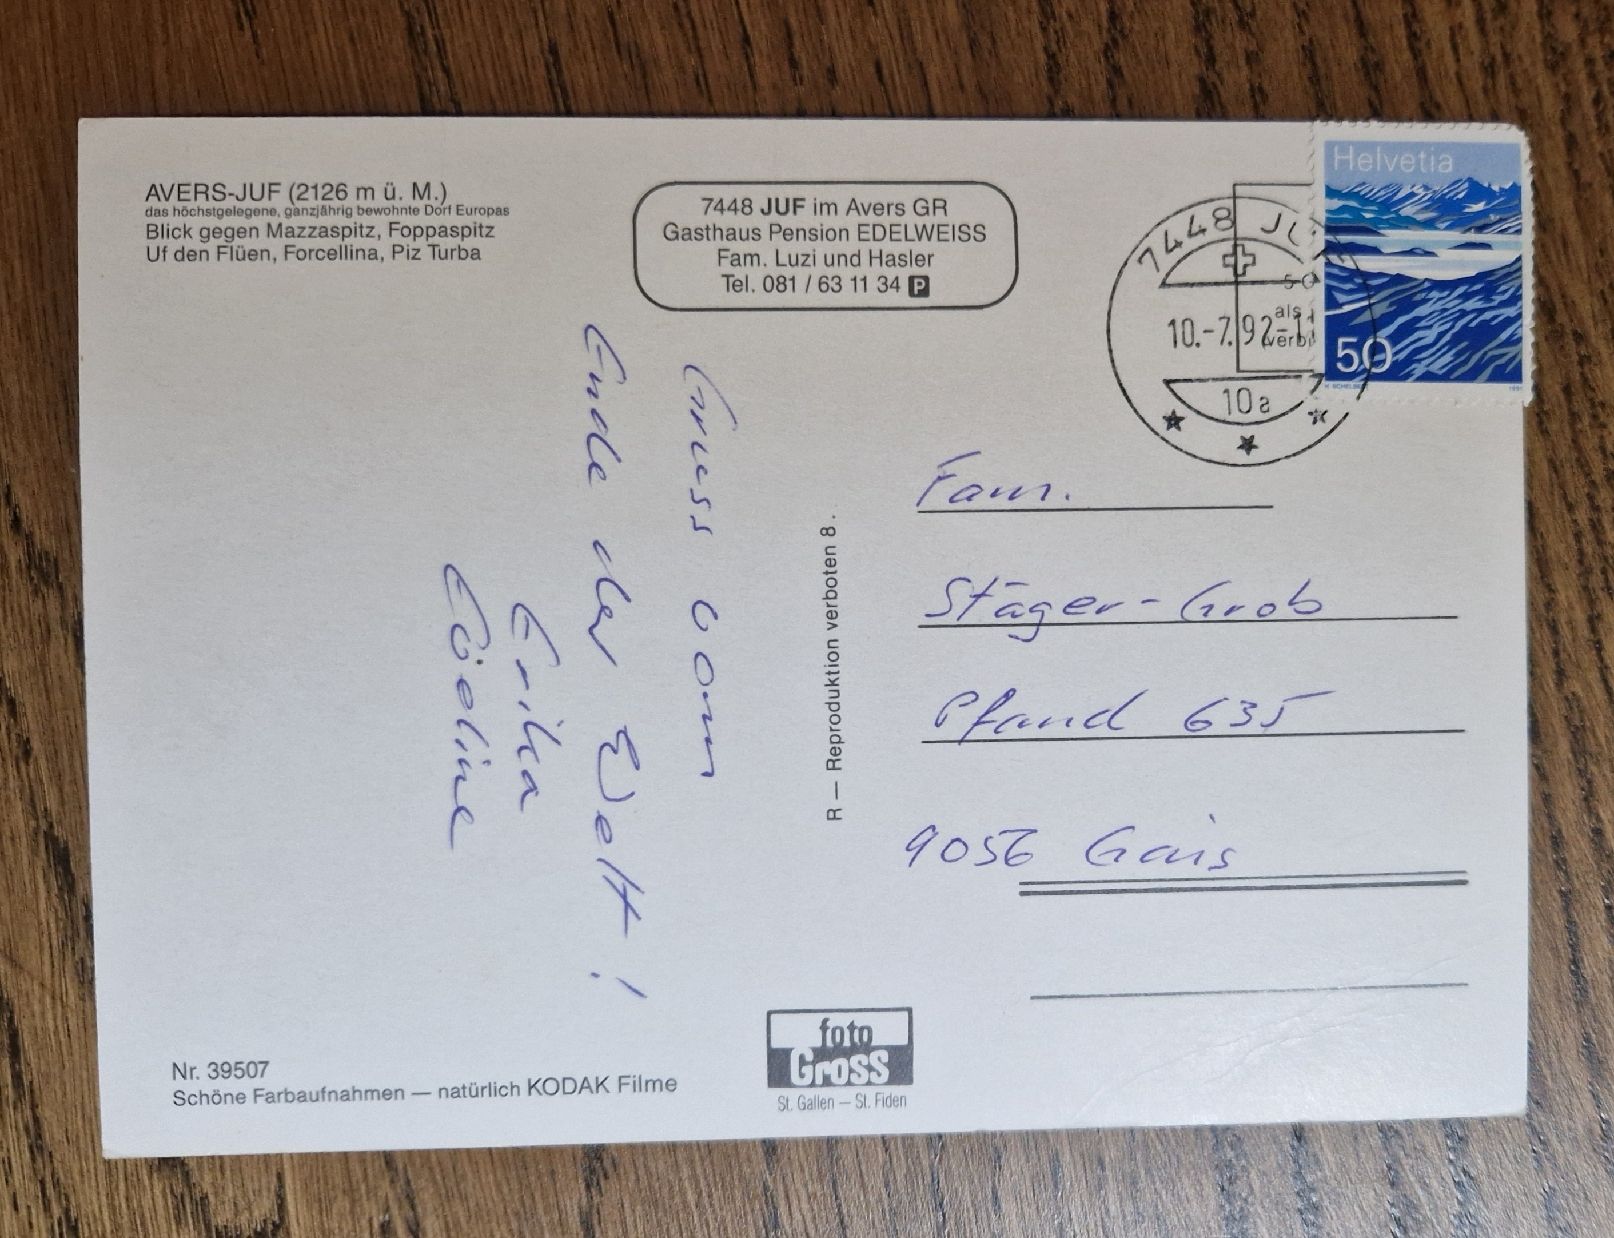 AVERS-JUF (2126 m ü. M.)
das höchstgelegene, ganzjährig bewohnte Dorf Europas
Blick gegen Mazzaspitz, Foppaspitz
Uf den Flüen, Forcellina, Piz Turba
7448 JUF im Avers GR
Gasthaus Pension EDELWEISS
Fam. Luzi und Hasler
Tel. 081 / 63 11 34 P
7448
10.-7.92-1
10a
50
als
Helvetia
50
1991
Gruss vom
Ende der Welt!
Erika
Eveline
R — Reproduktion verboten 8.
Fam.
Stäger-Grob
Pfand 635
9056 Gais
Nr. 39507
Schöne Farbaufnahmen — natürlich KODAK Filme
foto
Gross
St. Gallen — St. Fiden